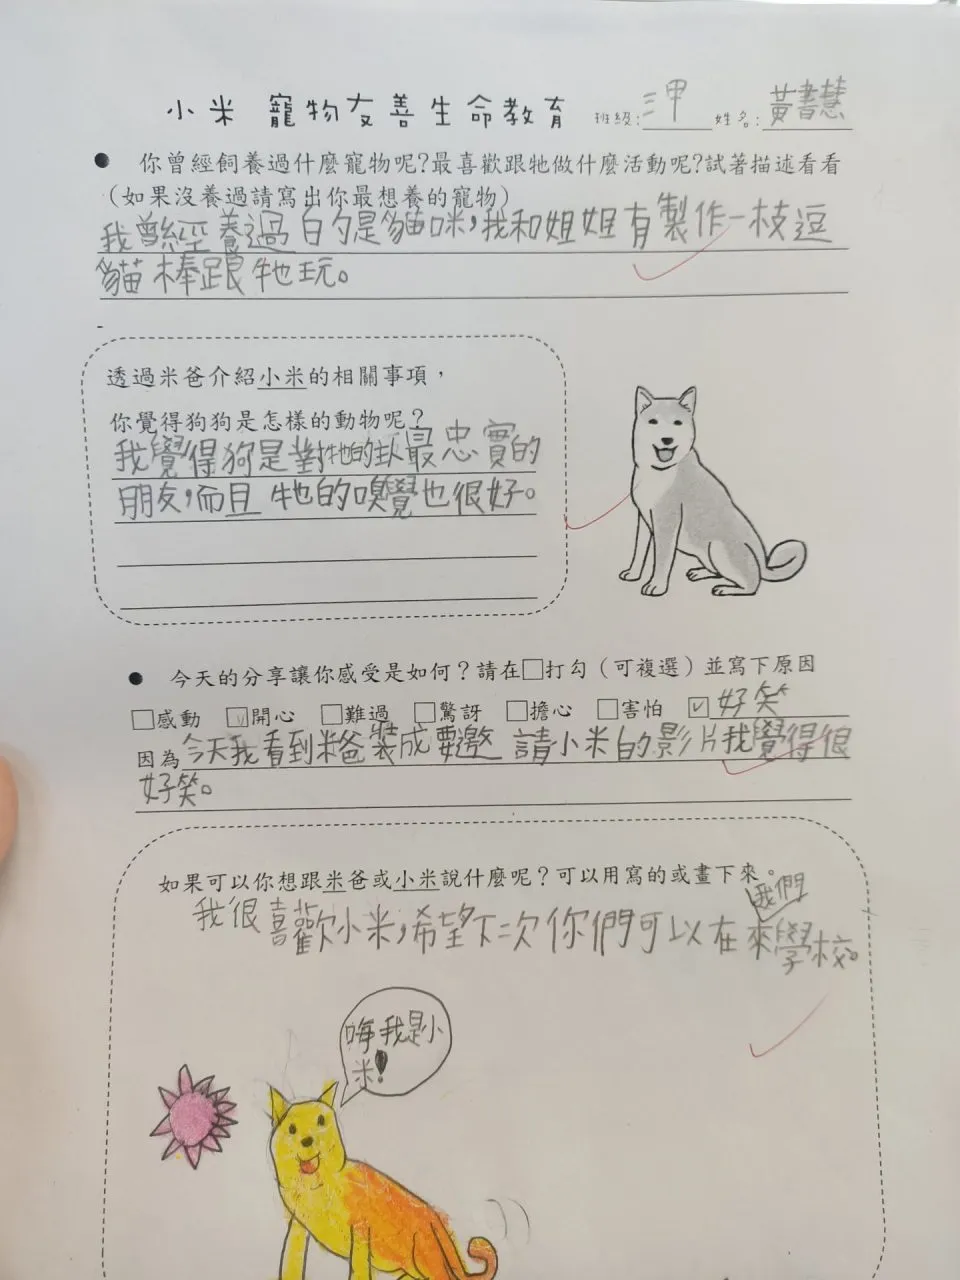 小米 寵物友善生命教育 班級:三甲 姓名:黃書慧
你曾經飼養過什麼寵物呢?最喜歡跟牠做什麼活動呢?試著描述看看
(如果沒養過請寫出你最想養的寵物)
我曾經養過白的是貓咪,我和姐姐有製作一枝逗
貓棒跟牠玩。
透過米爸介紹小米的相關事項,
你覺得狗狗是怎樣的動物呢?
我覺得狗是對牠的主人最忠實的
朋友,而且牠的嗅覺也很好。
今天的分享讓你感受是如何?請在□打勾(可複選)並寫下原因
□感動 ☑開心 □難過 □驚訝 □擔心 □害怕 ☑好笑
因為今天我看到米爸裝成要邀請小米的影片我覺得很
好笑。
如果可以你想跟米爸或小米說什麼呢?可以用寫的或畫下來。
我很喜歡小米,希望下次你們可以在來我們學校。
嗨我是小
米!